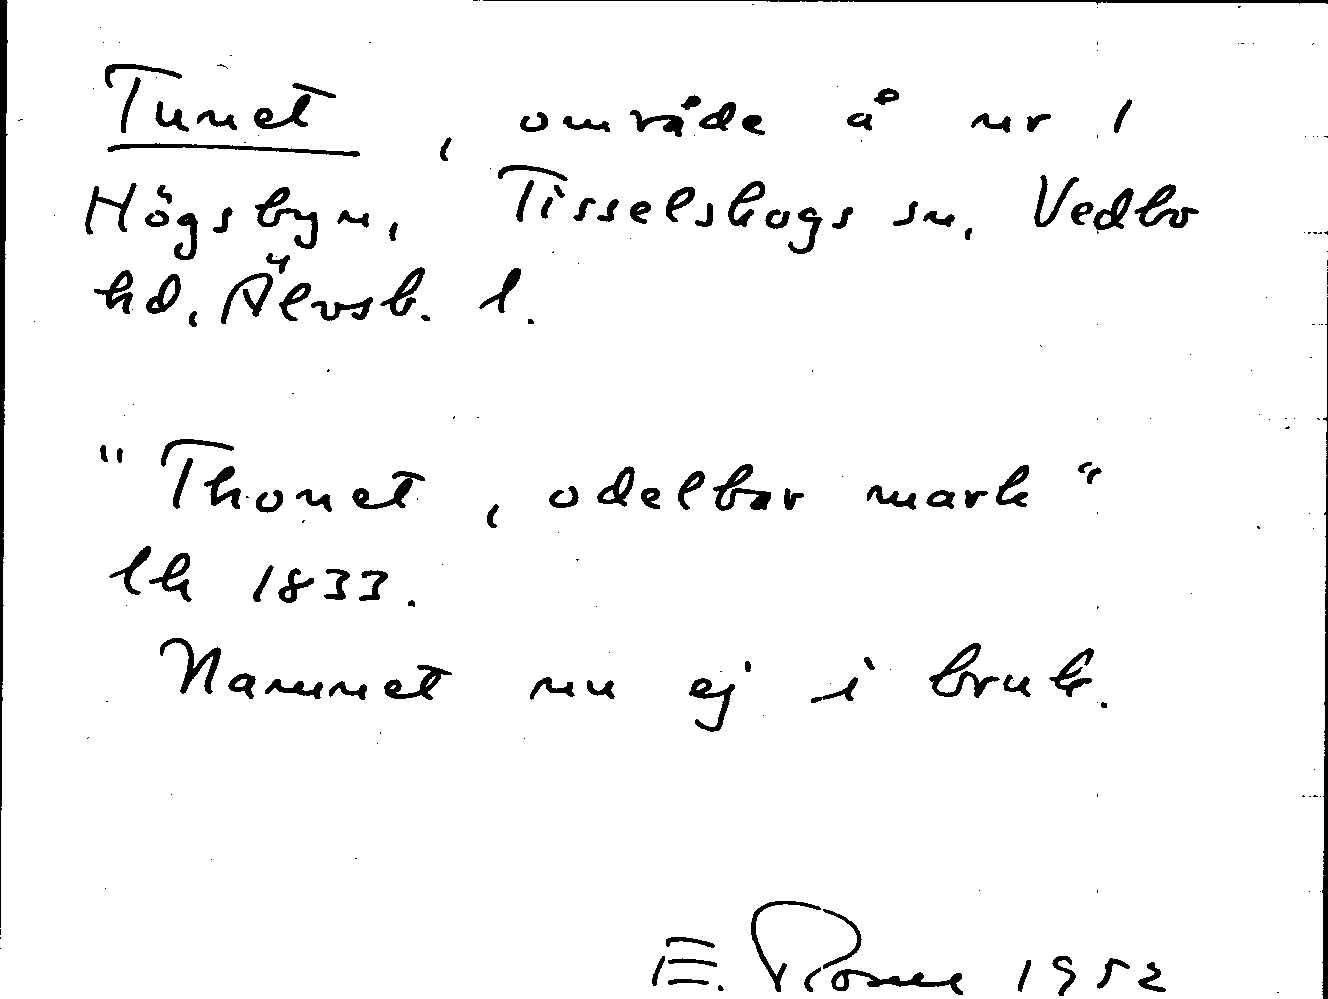 Tunet, område å nr 1
Högsbyn, Tisselskogs sn, Vedbo
hd, Älvsb. l.
"Thonet, odelbar mark"
lk 1833.
Namnet nu ej i bruk.
E. 1952